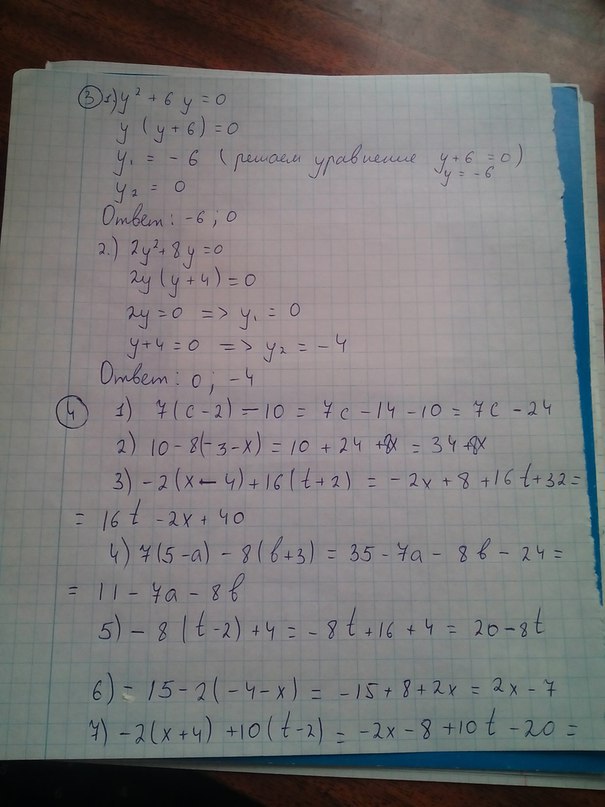 3 1) y² + 6 y = 0
y (y+6) = 0
y₁ = - 6 (решаем уравнение y+6 = 0)
y = -6
y₂ = 0
Ответ: -6 ; 0
2.) 2y² + 8y = 0
2y (y+4) = 0
2y = 0 => y₁ = 0
y+4 = 0 => y₂ = -4
Ответ: 0 ; -4
4 1) 7(c-2) - 10 = 7c - 14 - 10 = 7c - 24
2) 10 - 8(-3-x) = 10 + 24 + 8x = 34 + 8x
3) -2(x - 4) + 16(t+2) = -2x + 8 + 16t + 32 =
= 16t - 2x + 40
4) 7(5-a) - 8(b+3) = 35 - 7a - 8b - 24 =
= 11 - 7a - 8b
5) - 8 (t-2) + 4 = -8t + 16 + 4 = 20 - 8t
6) - 15 - 2(-4-x) = -15 + 8 + 2x = 2x - 7
7) -2(x+4) + 10(t-2) = -2x - 8 + 10t - 20 =